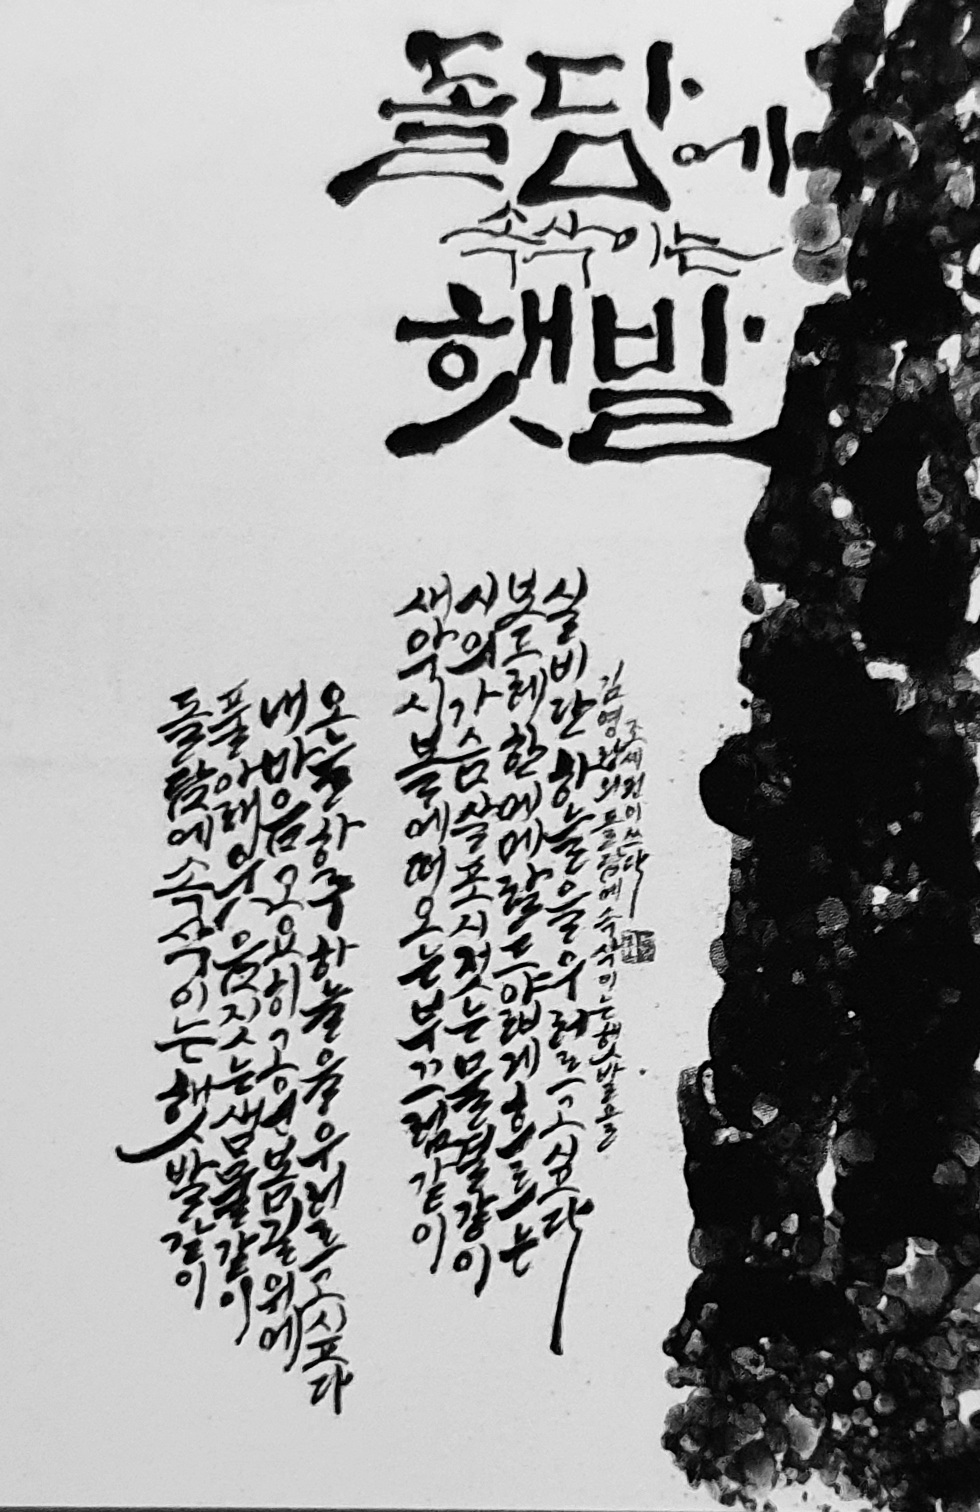 돌담에
속삭이는
햇발
돌담에 속삭이는 햇발같이
풀아래 웃음짓는 샘물같이
내마음 고요히 고운 봄길 위에
오늘하루 하늘을 우러르고 시프다
새악시 볼에 떠오는 부끄럼같이
시의 가슴 살포시 젖는 물결같이
보드레한 에메랄드 얇게 흐르는
실비단 하늘을 우러르고 싶다
김영랑의 돌담에 속삭이는 햇발을
쓰다